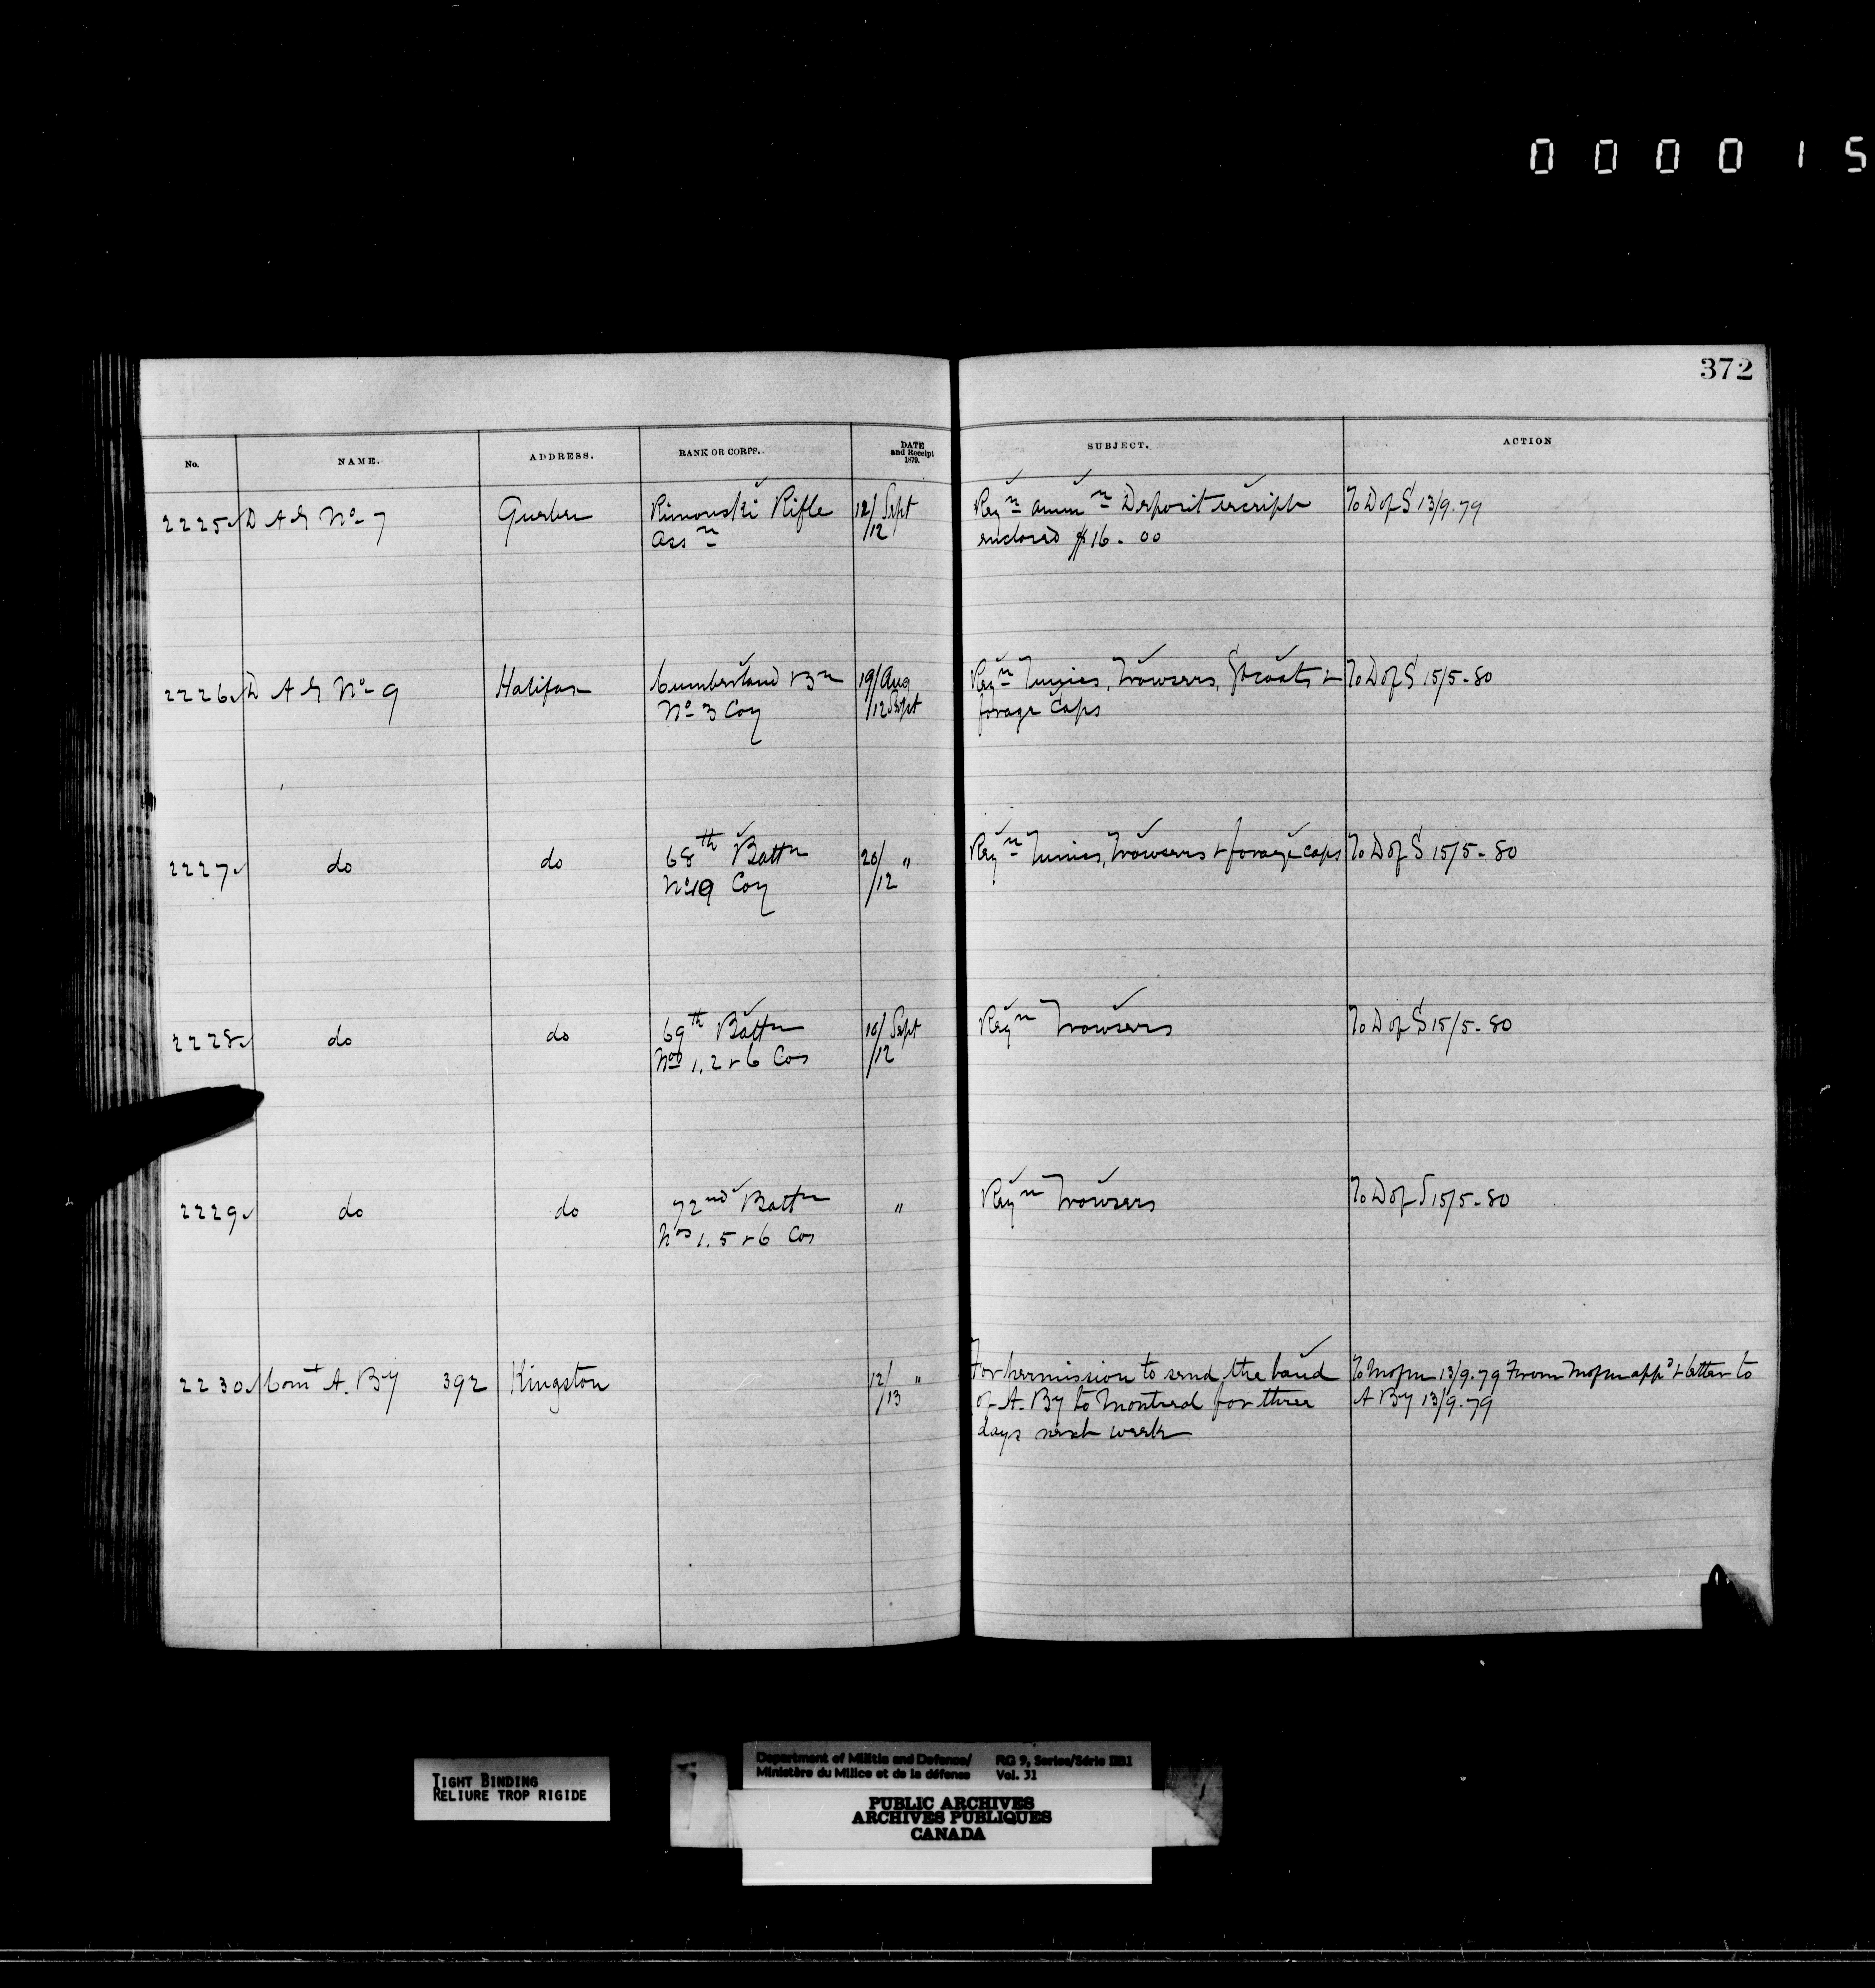 000015
372
No. NAME. ADDRESS. RANK OR CORPS. DATE and Receipt 1879. SUBJECT. ACTION
2225 D A G No 7 Quebec Rimouski Rifle 12/ Sept Reqn Ammn Deposit receipt To D of S 13/9.79
Assn /12 enclosed $16.00
2226 D A G No 9 Halifax Cumberland Bn 19/ Aug Reqn Tunics, Trowsers, Gt coats & To D of S 15/5-80
No 3 Coy /12 Sept forage Caps
2227 do do 68th Battn 20/ " Reqn Tunics, Trowsers & forage caps To D of S 15/5-80
Coy /12
2228 do do 69th Battn 10/ Sept Reqn Trowsers To D of S 15/5-80
Nos 1, 2 & 6 Cos /12
2229 do do 72nd Battn " Reqn Trowsers To D of S 15/5-80
Nos 1. 5 & 6 Cos
2230 Comt A. By 392 Kingston 12/ " For permission to send the band To Mofm 13/9.79 From Mofm appd & letter to
/13 of A. By to Montreal for three A By 13/9.79
days next week
TIGHT BINDING
RELIURE TROP RIGIDE
Department of Militia and Defence/ RG 9, Series/Série IIB1
Ministère du Milice et de la défense Vol. 31
PUBLIC ARCHIVES
ARCHIVES PUBLIQUES
CANADA